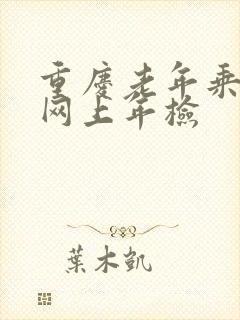 重慶老年乘
网上年檢
葉木凱